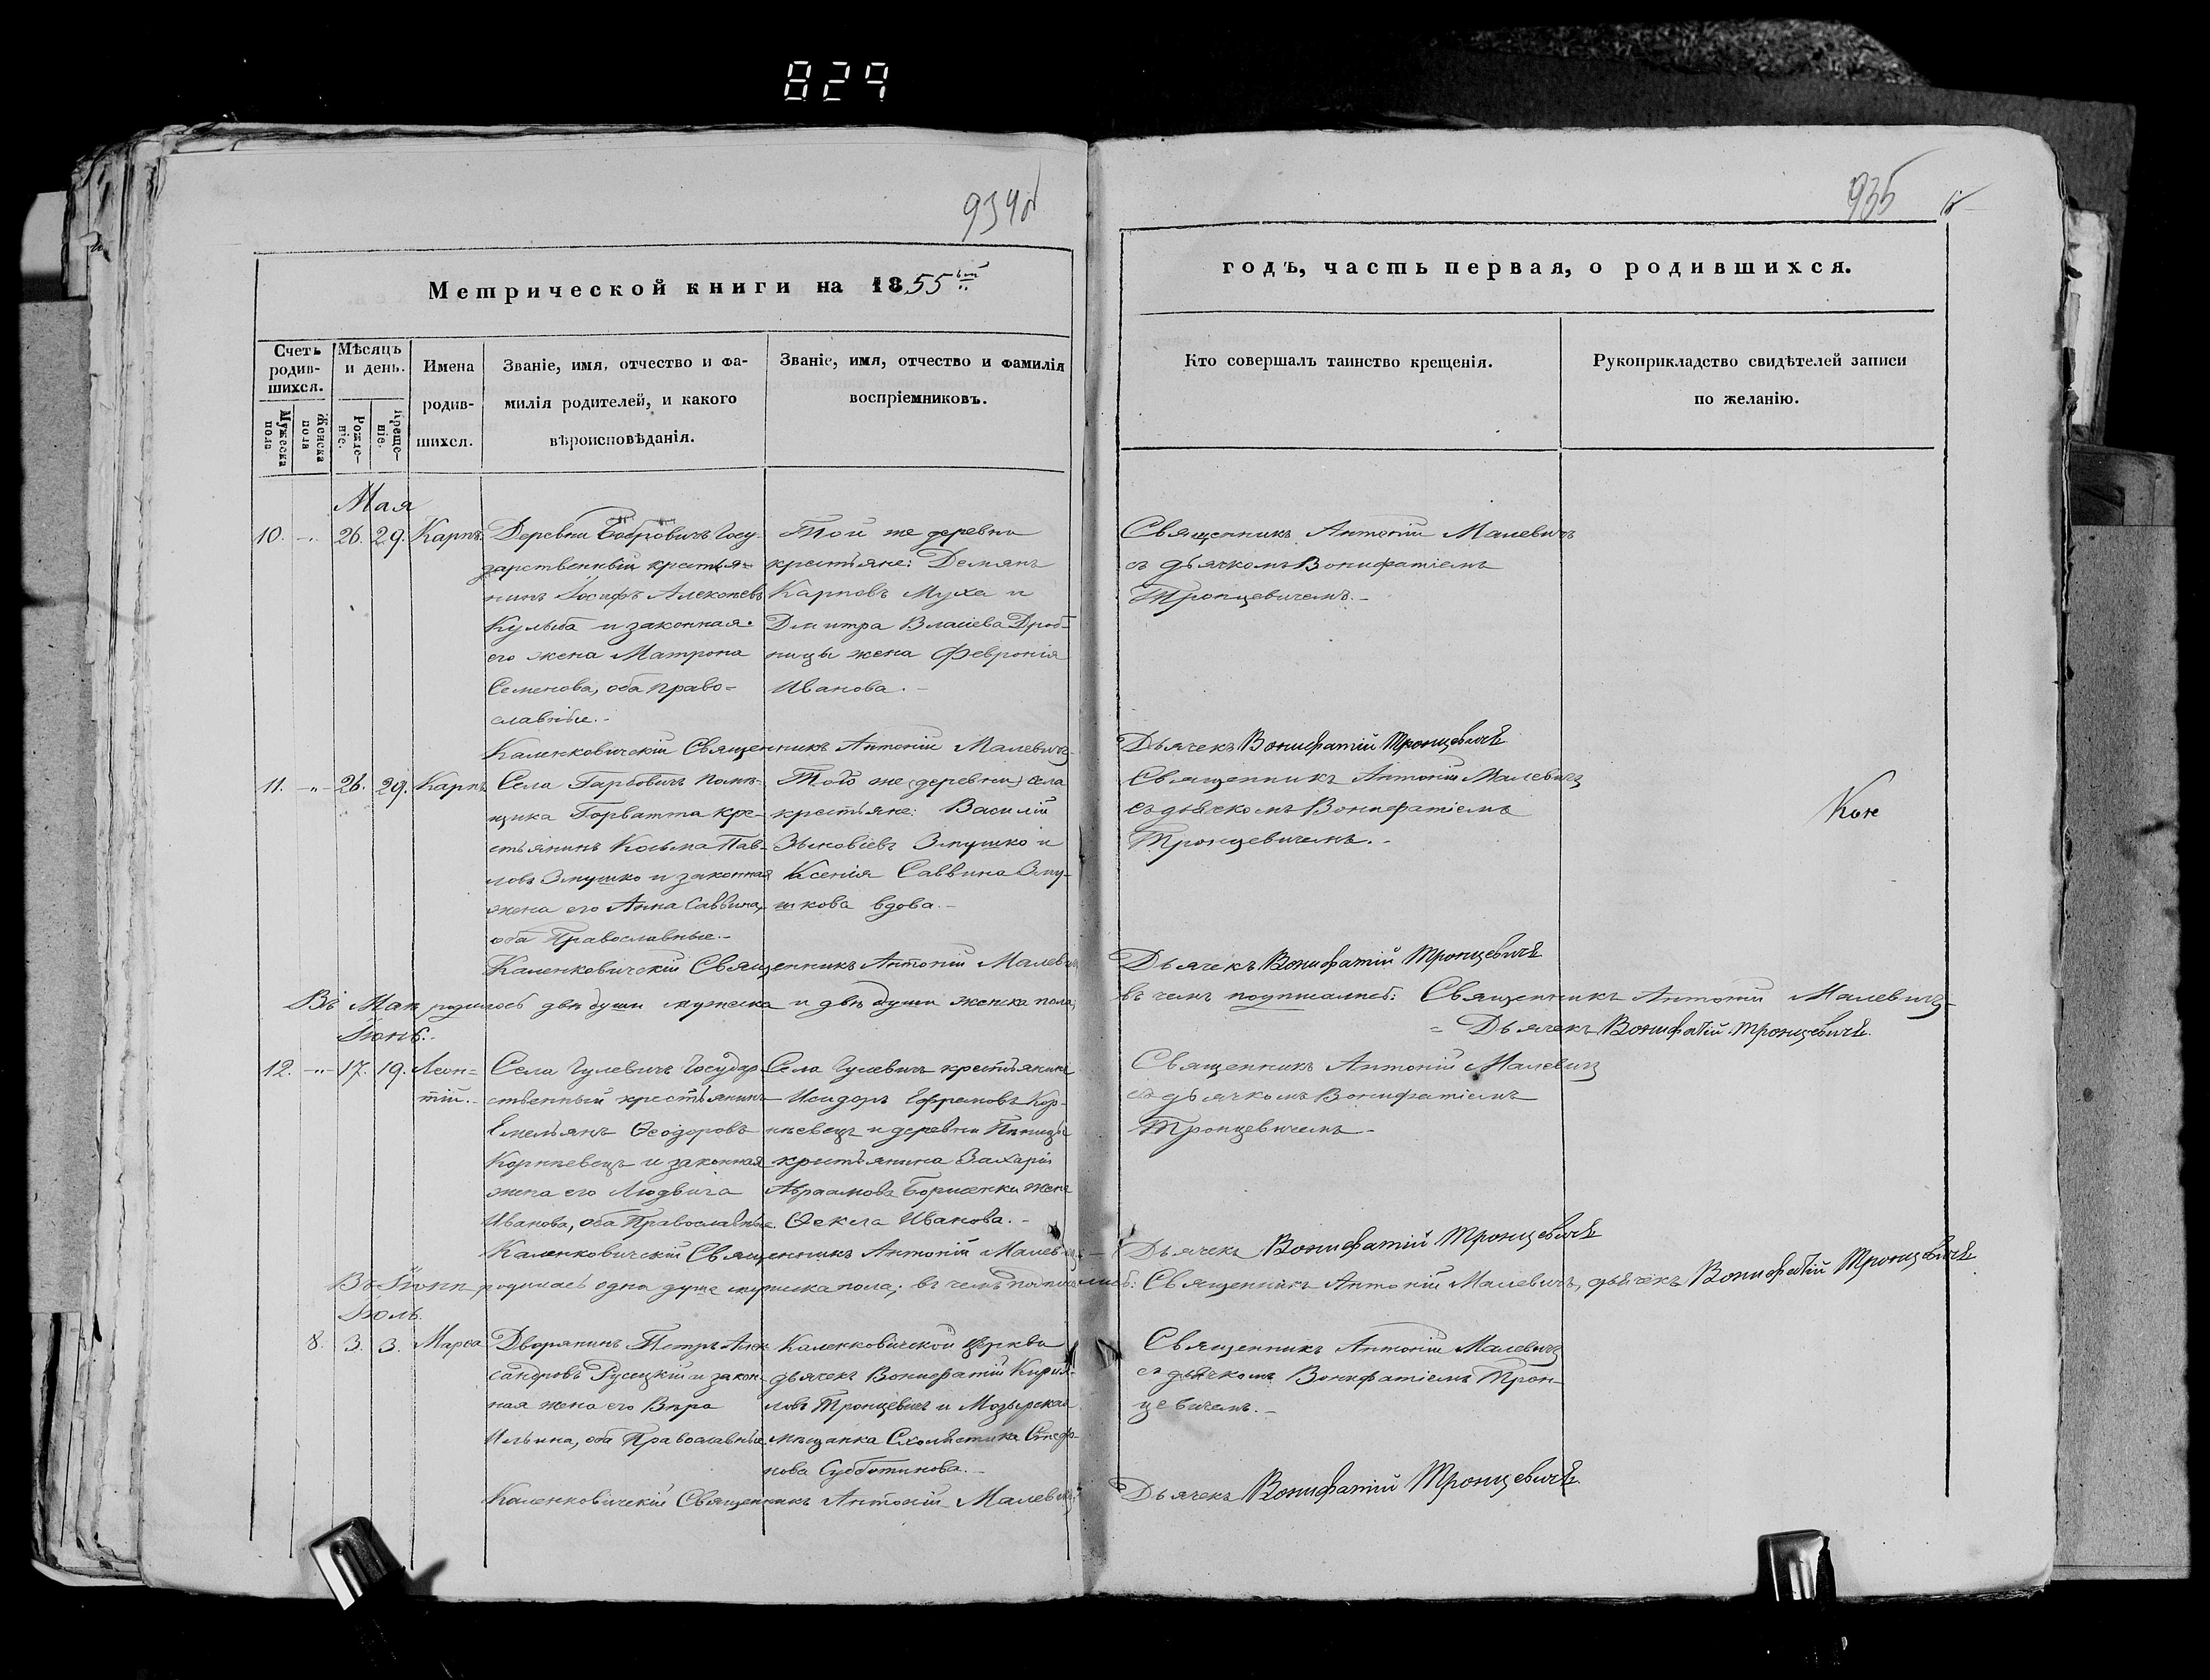 829
934об
935
Метрической книги на 1855ый
годъ, часть первая, о родившихся.
Счетъ родив-шихся.
Мужеска пола
Женска пола
Мѣсяцъ и день.
Рожде-ніе.
Креще-ніе.
Имена родив-шихся.
Званіе, имя, отчество и фа-
милія родителей, и какого
вѣроисповѣданія.
Званіе, имя, отчество и фамилія
воспріемниковъ.
Кто совершалъ таинство крещенія.
Рукоприкладство свидѣтелей записи
по желанію.
Мая
10. -„- 26. 29. Карпъ.
Деревни Бобровичъ Госу-
дарственный крестья-
нинъ Іосифъ Алексѣевъ
Кулыба и законная
его жена Матрона
Семенова, оба право-
славные.-
Той же деревни
крестьяне: Демянъ
Карповъ Муха и
Дмитра Власіева Дроб-
ницы жена Февронія
Иванова.-
Священникъ Антоній Малевичъ
съ дьячкомъ Вонифатіемъ
Тронцевичемъ.-
Каленковичскій Священникъ Антоній Малевичъ
Дьячекъ Вонифатій Тронцевичъ
11. -„- 26. 29. Карпъ
Села Гарбовичъ помѣ-
щика Горватта кре-
стьянинъ Косьма Пав-
ловъ Змушко и законная
жена его Анна Саввина,
оба Православные.-
Того же (деревни) села
крестьяне: Василій
Зѣновіевъ Змушко и
Ксенія Саввина Зму-
шкова вдова.-
Священникъ Антоній Малевичъ
съ дьячкомъ Вонифатіемъ
Тронцевичемъ.-
Каленковичскій Священникъ Антоній Малевичъ
Дьячекъ Вонифатій Тронцевичъ
Въ Маѣ родилось двѣ души мужеска и двѣ души женска пола, въ чемъ подписались: Священникъ Антоній Малевичъ
= Дьячекъ Вонифатій Тронцевичъ.
Іюнь.
12. -„- 17. 19. Леон=
тій.-
Села Гулевичъ Государ-
ственный крестьянинъ
Емельянъ Ѳеодоровъ
Корнѣевецъ и законная
жена его Людвига
Иванова, оба Православные
Села Гулевичъ крестьянинъ
Исидоръ Ефремовъ Кор-
нѣевецъ и деревни
крестьянина Захарія
Авраамова жена
Ѳекла Иванова.-
Священникъ Антоній Малевичъ
съ дьячкомъ Вонифатіемъ
Тронцевичемъ-
Каленковичскій Священникъ Антоній Малевичъ
Дьячекъ Вонифатій Тронцевичъ
Въ Іюнѣ родилась одна душа мужеска пола; въ чемъ подписались: Священникъ Антоній Малевичъ, дьячекъ Вонифатій Тронцевичъ
Іюль.
8. 3. 3. Марѳа
Дворянинъ Петръ Алек-
сандровъ Русецкій и закон-
ная жена его Вѣра
Ильина, оба Православные.
Каленковичской Церкви
дьячекъ Вонифатій Кирил-
ловъ Тронцевичъ и Мозырская
мѣщанка Схоластика Стефа-
нова Субботинова.-
Священникъ Антоній Малевичъ
съ дьячкомъ Вонифатіемъ Трон-
цевичемъ.-
Каленковичскій Священникъ Антоній Малевичъ
Дьячекъ Вонифатій Тронцевичъ.